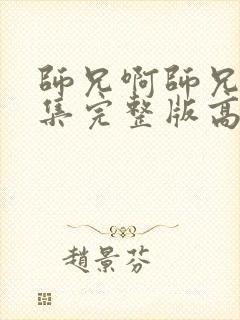 師兄啊師兄
集完整版高
趙景芬